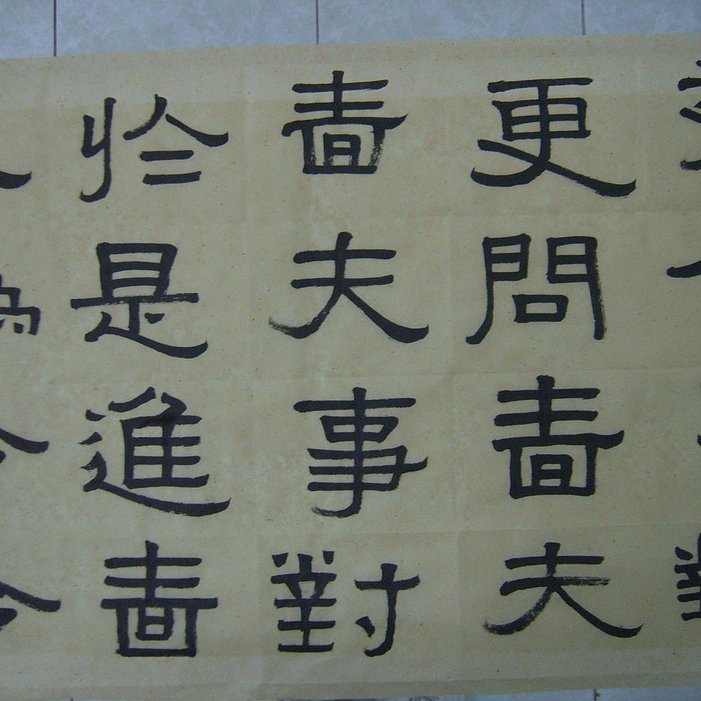 更問嗇夫
嗇夫事對
於是進嗇